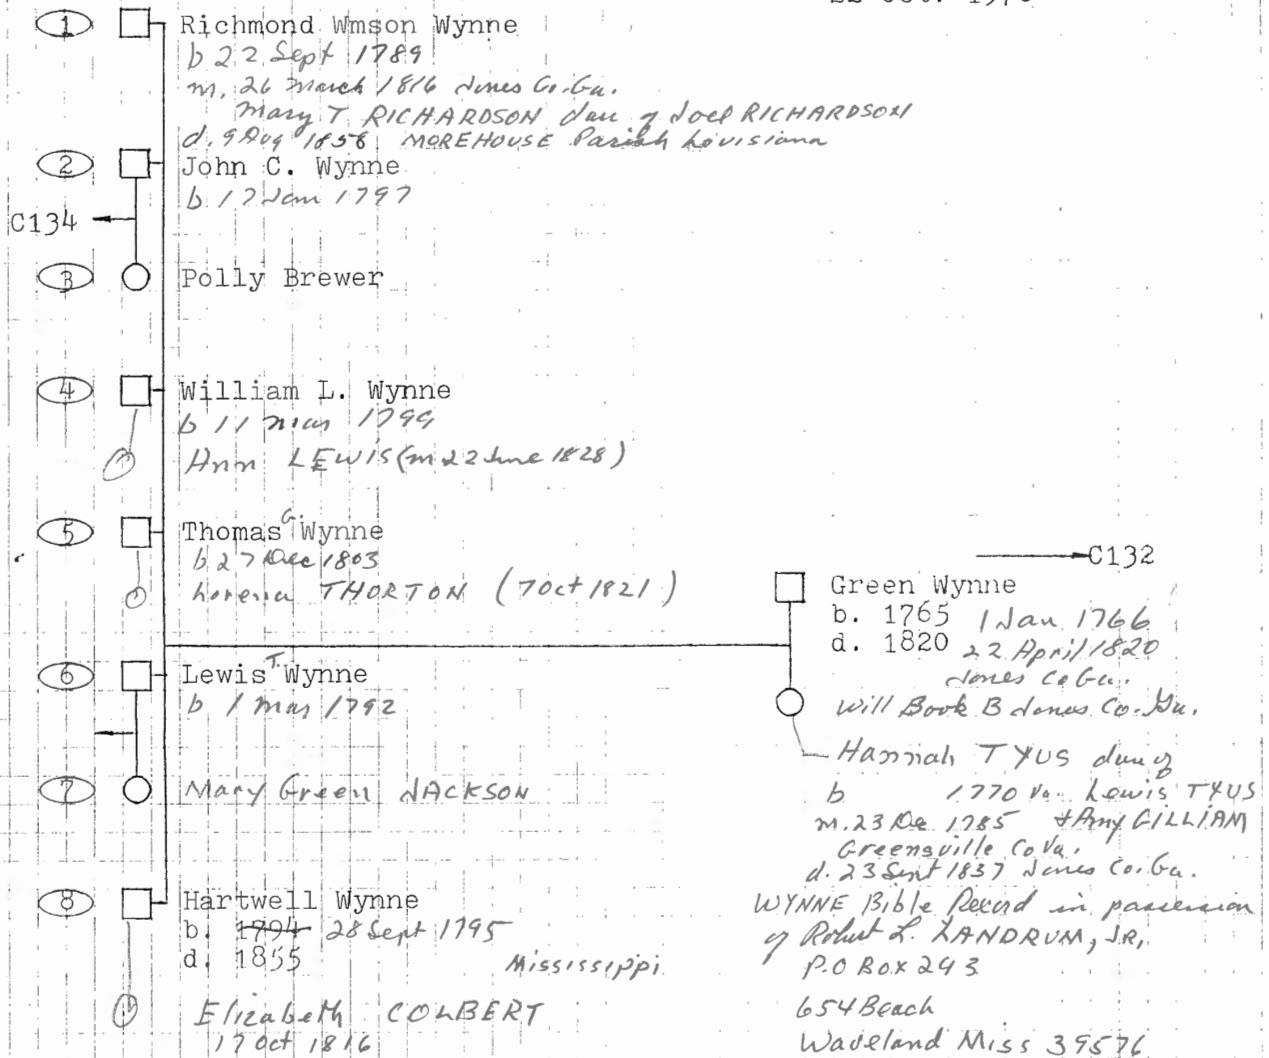 1 Richmond Wmson Wynne
b 22 Sept 1789
m. 26 March 1816 Jones Co. Ga.
Mary T RICHARDSON dau of Joel RICHARDSON
d. 9 Aug 1858 MOREHOUSE Parish Louisiana
2 John C. Wynne
b 17 Jan 1797
C134
3 Polly Brewer
4 William L. Wynne
b 11 Mar 1799
Ann LEWIS (m 22 June 1828)
5 Thomas G. Wynne
b 27 Dec 1803
Lorena THORTON (7 Oct 1821)
6 Lewis T. Wynne
b 1 Mar 1792
7 Mary Green JACKSON
8 Hartwell Wynne
b. 1794 28 Sept 1795
d. 1855 Mississippi
Elizabeth COLBERT
17 Oct 1816
C132
Green Wynne
b. 1765 1 Jan 1766
d. 1820 22 April 1820
Jones Co Ga.
Will Book B Jones Co. Ga.
Hannah TYUS dau of
b 1770 Va. Lewis TYUS
m. 23 De 1785 + Amy GILLIAM
Greensville Co Va.
d. 23 Sept 1837 Jones Co. Ga.
WYNNE Bible Record in possession
of Robert L. LANDRUM, JR,
P.O Box 243
654 Beach
Waveland Miss 39576